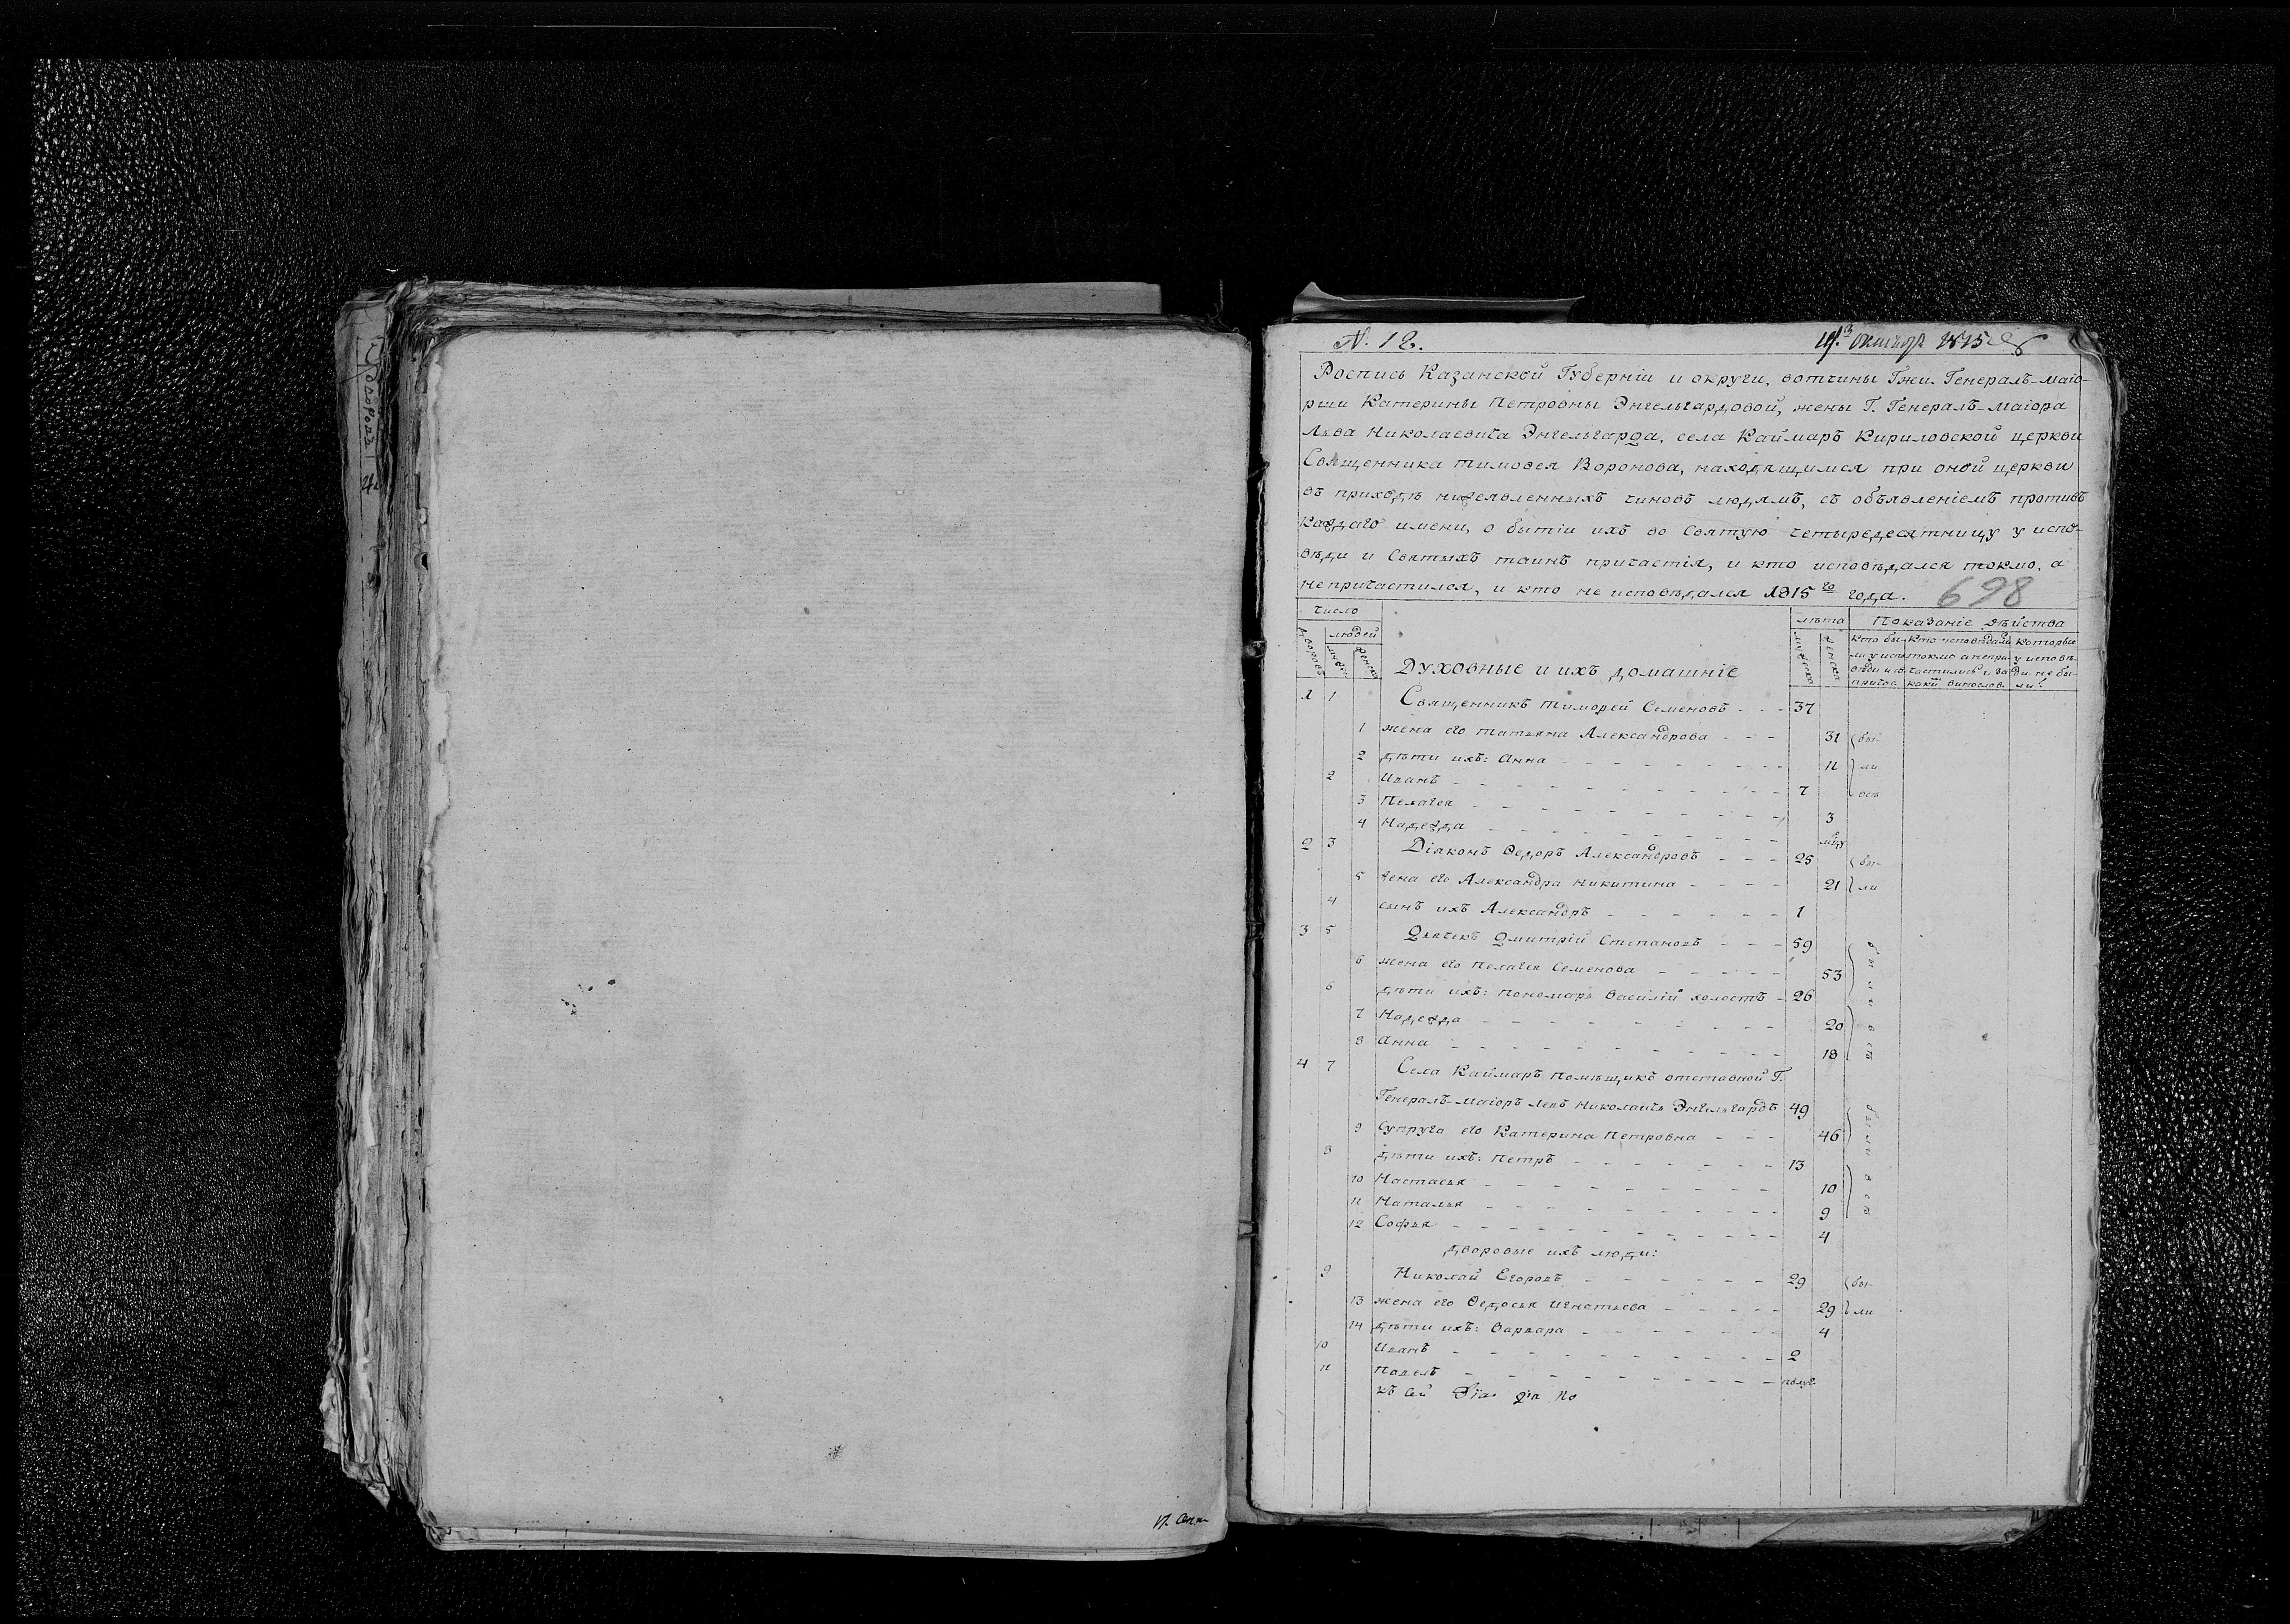 N. 12.
Октябр 1815
Роспись Казанской Губерніи и округи, вотчины Гжи. Генералъ-маіо-
рши Катерины Петровны Энгельгардовой, жены Г. Генералъ-маіора
Льва Николаевича Энгельгарда, села Каймаръ Кириловской церкви
Священника Тимоѳея Воронова, находящимся при оной церкви
въ приходѣ нижеявленныхъ чиновъ людямъ, съ объявленіемъ противъ
каждаго имени, о бытіи ихъ во святую четыредесятницу у испо-
вѣди и Святыхъ таинъ причастія, и кто исповѣдался токмо, а
непричастился, и кто не исповѣдался 1815го года. 698
число лѣта Показаніе дѣйства
дворовъ людей мужеска женска
Духовные и ихъ домашніе
1 1 Священникъ Тимоѳей Семеновъ - - - 37
1 жена его Татьяна Александрова - - - 31 бы-
2 дѣти ихъ: Анна - - - 11 ли
2 Иванъ - - - 7 всѣ
3 Пелагея - - - 3
4 Надежда - - -
2 3 Діяконъ Ѳедоръ Александровъ - - - 25 бы-
5 жена его Александра Никитина - - - 21 ли
4 сынъ ихъ Александръ - - - 1
3 5 Дьячекъ Дмитрій Степановъ - - - 59
6 жена его Пелагея Семенова - - - 53 были всѣ
6 дѣти ихъ: пономарь Василій холостъ - 26
7 Надежда - - - 20
8 Анна - - - 18
4 7 Села Каймаръ помѣщикъ отставной Г.
Генералъ-маіоръ Левъ Николаичь Энгельгардъ 49
9 Супруга его Катерина Петровна - - - 46 были всѣ
8 дѣти ихъ: Петръ - - - 13
10 Настасья - - - 10
11 Наталья - - - 9
12 Софья - - - 4
дворовые ихъ люди:
9 Николай Егоровъ - - - 29 бы-
13 жена его Ѳедосья Игнатьева - - - 29 ли
14 дѣти ихъ: Варвара - - - 4
10 Иванъ - - - 2
11 Павелъ - - - полуг.
къ сей